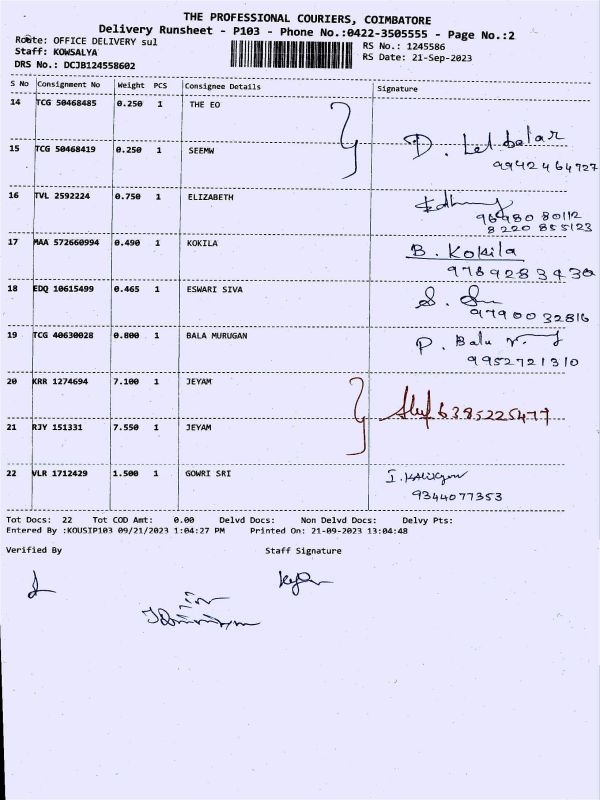 THE PROFESSIONAL COURIERS, COIMBATORE
Delivery Runsheet - P103 - Phone No.:0422-3505555 - Page No.:2
Route: OFFICE DELIVERY sul
RS No.: 1245586
Staff: KOWSALYA
RS Date: 21-Sep-2023
DRS No.: DCJB124558602
S No Consignment No Weight PCS Consignee Details Signature
14 TCG 50468485 0.250 1 THE EO
15 TCG 50468419 0.250 1 SEEMW D.
9942464727
16 TVL 2592224 0.750 1 ELIZABETH
96980 80112
8220 855123
17 MAA 572660994 0.490 1 KOKILA B. Kokila
9789283430
18 EDQ 10615499 0.465 1 ESWARI SIVA S.
9790032816
19 TCG 40630028 0.800 1 BALA MURUGAN P. Bala
9952721310
20 KRR 1274694 7.100 1 JEYAM
6385225477
21 RJY 151331 7.550 1 JEYAM
22 VLR 1712429 1.500 1 GOWRI SRI I.
9344077353
Tot Docs: 22 Tot COD Amt: 0.00 Delvd Docs: Non Delvd Docs: Delvy Pts:
Entered By :KOUSIP103 09/21/2023 1:04:27 PM Printed On: 21-09-2023 13:04:48
Verified By Staff Signature